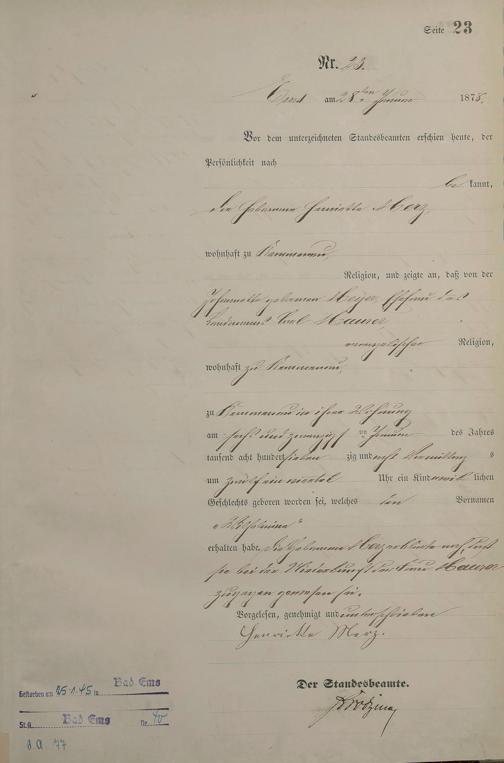 Seite 23
Nr. 23.
Ems am 28ten Januar 1878.
Vor dem unterzeichneten Standesbeamten erschien heute, der
Persönlichkeit nach
be kannt,
die Hebamme Henriette Merz
wohnhaft zu Kemmenau,
Religion, und zeigte an, daß von der
geborenen Meyer, Ehefrau des
Carl Hauser
evangelischer Religion,
wohnhaft zu Kemmenau,
zu Kemmenau in ihrer Wohnung
am sechs und zwanzigsten Januar des Jahres
tausend acht hundert sieben zig und acht Vormittags
um zwölf ein viertel Uhr ein Kind weib lichen
Geschlechts geboren worden sei, welches den Vornamen
"Wilhelmine"
erhalten habe. Die Hebamme Merz erklärte noch, daß
sie bei der Niederkunft der Frau Hauser
zugegen gewesen sei.
Vorgelesen, genehmigt und unterschrieben
Henriette Merz.
Der Standesbeamte.
Gestorben am 25.1.45 in Bad Ems
St.A. Bad Ems Nr. 40